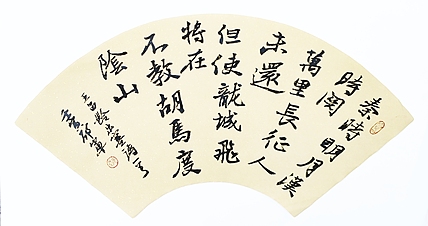 秦時明月漢
時関
萬里長征人
未還
但使龍城飛
將在
不教胡馬度
陰山
王昌齡出塞詩